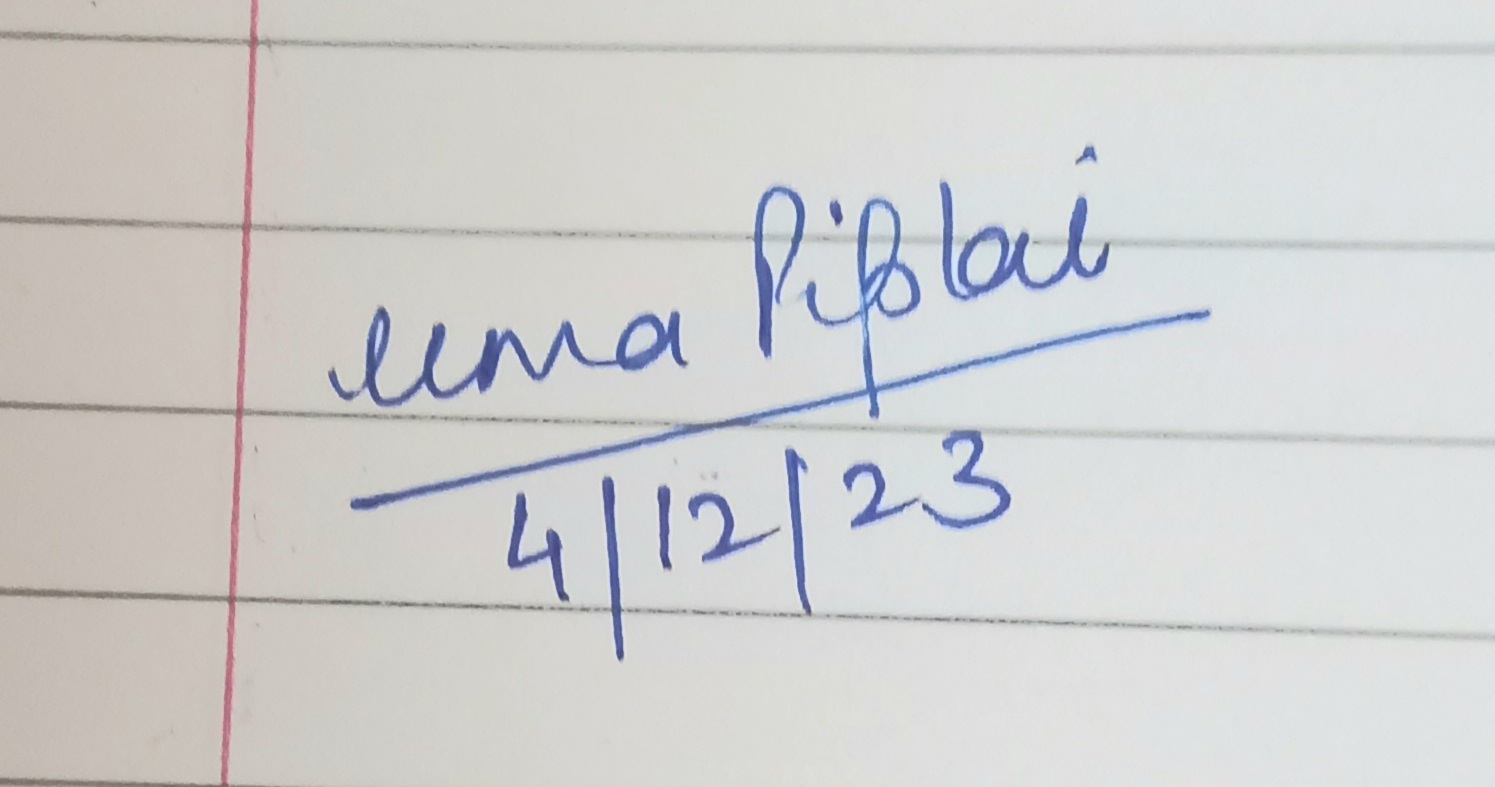 Uma Piplai
4/12/23